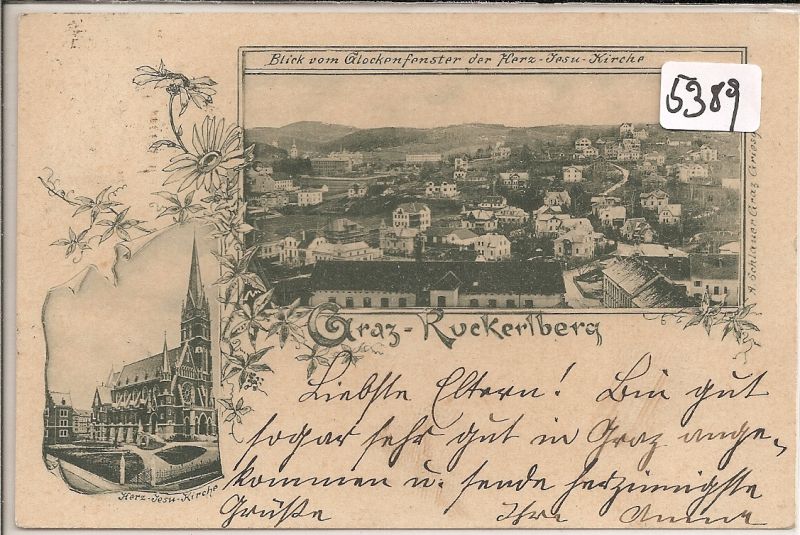 Blick vom Glockenfenster der Herz-Jesu-Kirche
5389
Graz-Ruckerlberg
Herz-Jesu-Kirche
Liebste Eltern! Bin gut
sogar sehr gut in Graz ange-
kommen u. sende herzinnigste
Grüße Ihre Anna
A. Schlauer Graz